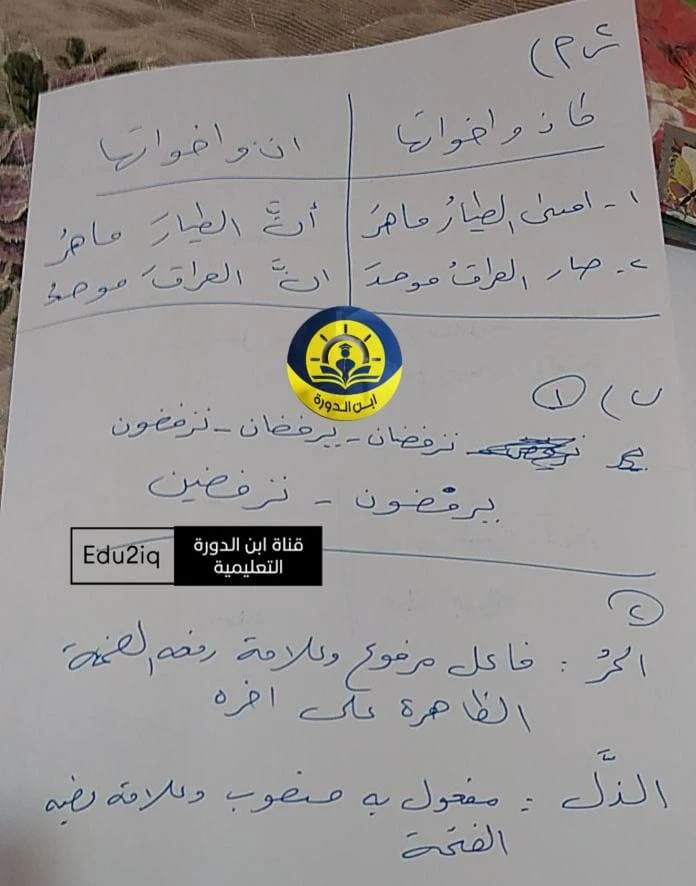 س٣)
كان واخواتها | ان واخواتها
١- امسى الطيارُ ماهرَ | أنَّ الطيارَ ماهرُ
٢- صار العراقُ موحدَ | انَّ العراقَ موحدُ
ابن الدورة
ب) ①
ترفضان - يرفضان - ترفضون
يرفضون - ترفضين
Edu2iq
قناة ابن الدورة
التعليمية
②
الحرُ : فاعل مرفوع وعلامة رفعه الضمة
الظاهرة على اخره
الذلَّ : مفعول به منصوب وعلامة نصبه
الفتحة